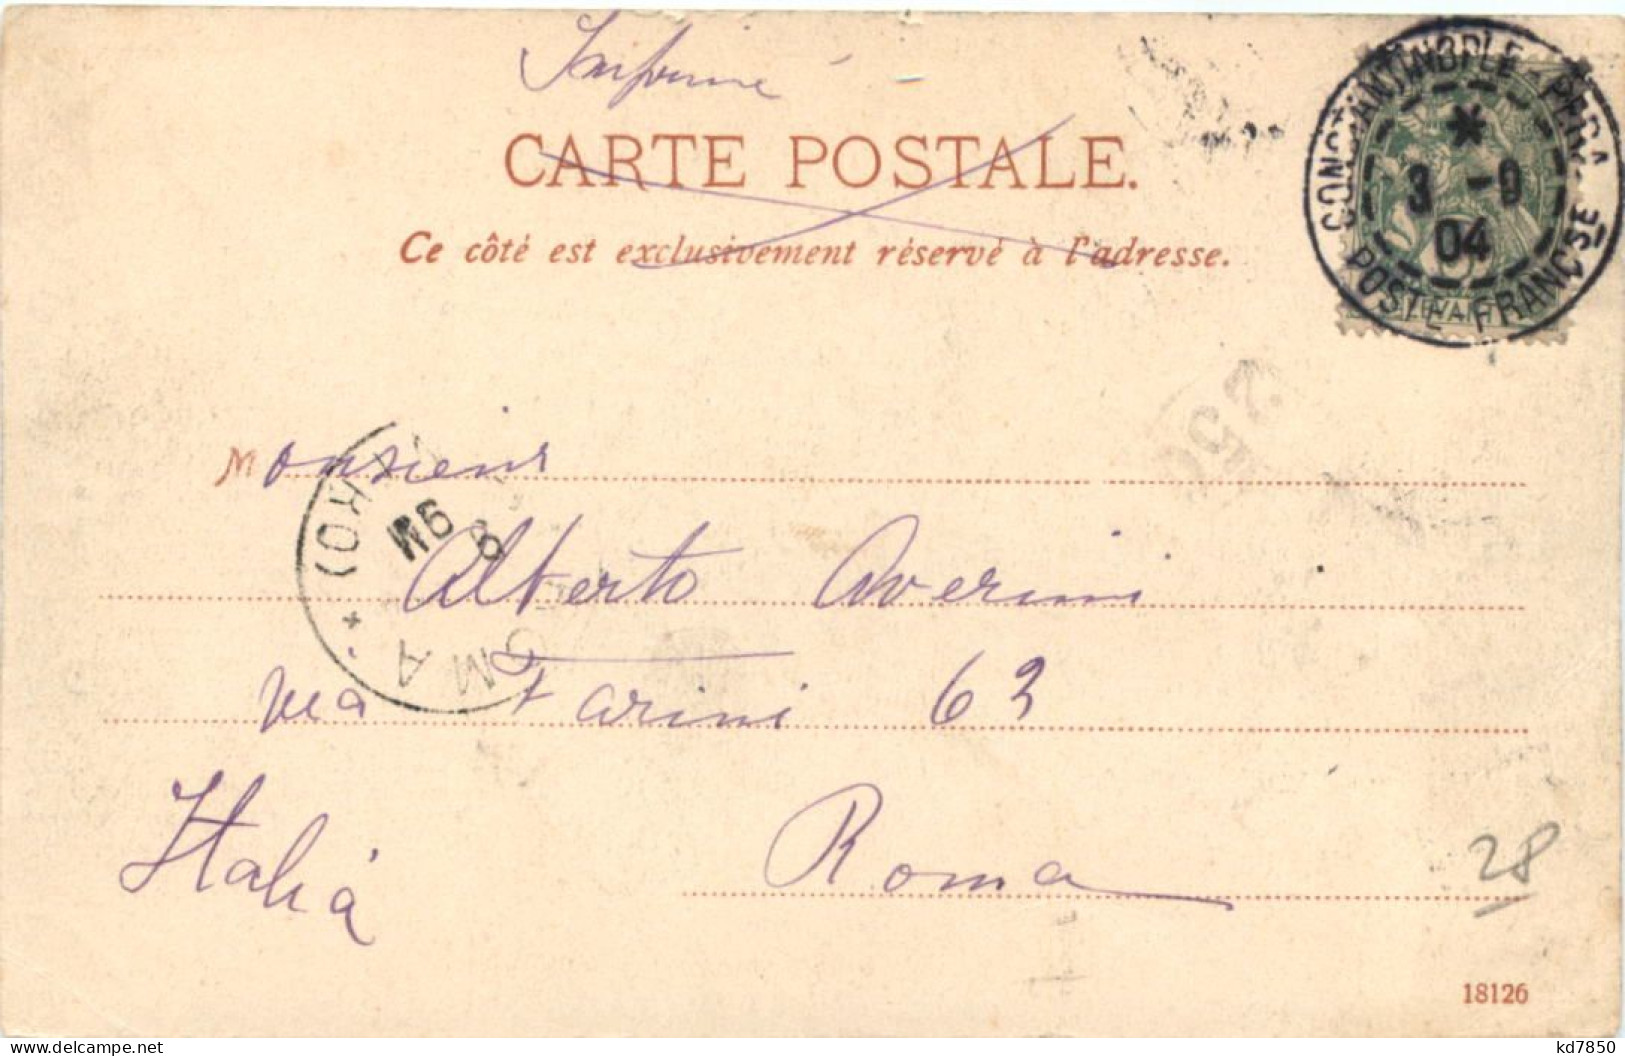 Imprimé
CARTE POSTALE.
Ce côté est exclusivement réservé à l'adresse.
CONSTANTINOPLE - PERA
3 - 04
POSTE FRANCSE
LEVANT
Monsieur
Alberto Averini
via Farini 63
Italia Roma
28
18126
kd7850